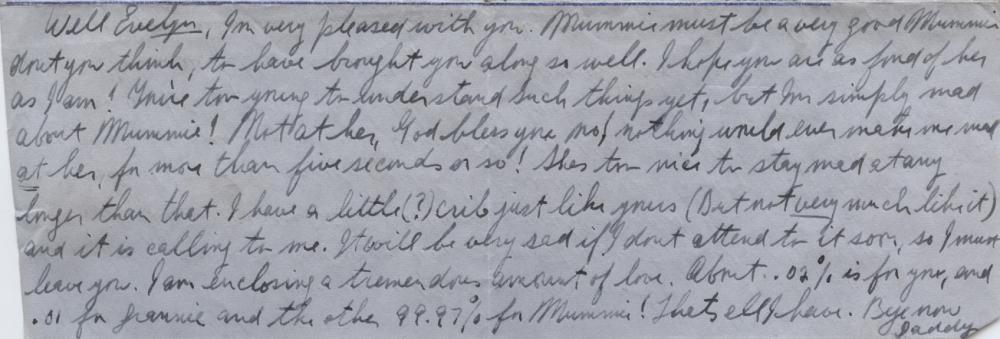 Well Evelyn, Im very pleased with you. Mummie must be a very good Mummie
dont you think, to have brought you along so well. I hope you are as fond of her
as I am! You're too young to understand such things yet, but Im simply mad
about Mummie! Not "at her," God bless you no! nothing would ever make me mad
at her, for more than five seconds or so! Shes too nice to stay mad at any
longer than that. I have a little (?) crib just like yours (But not very much like it)
and it is calling to me. It will be very sad if I dont attend to it soon, so I must
leave you. I am enclosing a tremendous amount of love. About .02% is for you, and
.01 for Grannie and the other 99.97% for Mummie! Thats all I have. Bye now
Daddy